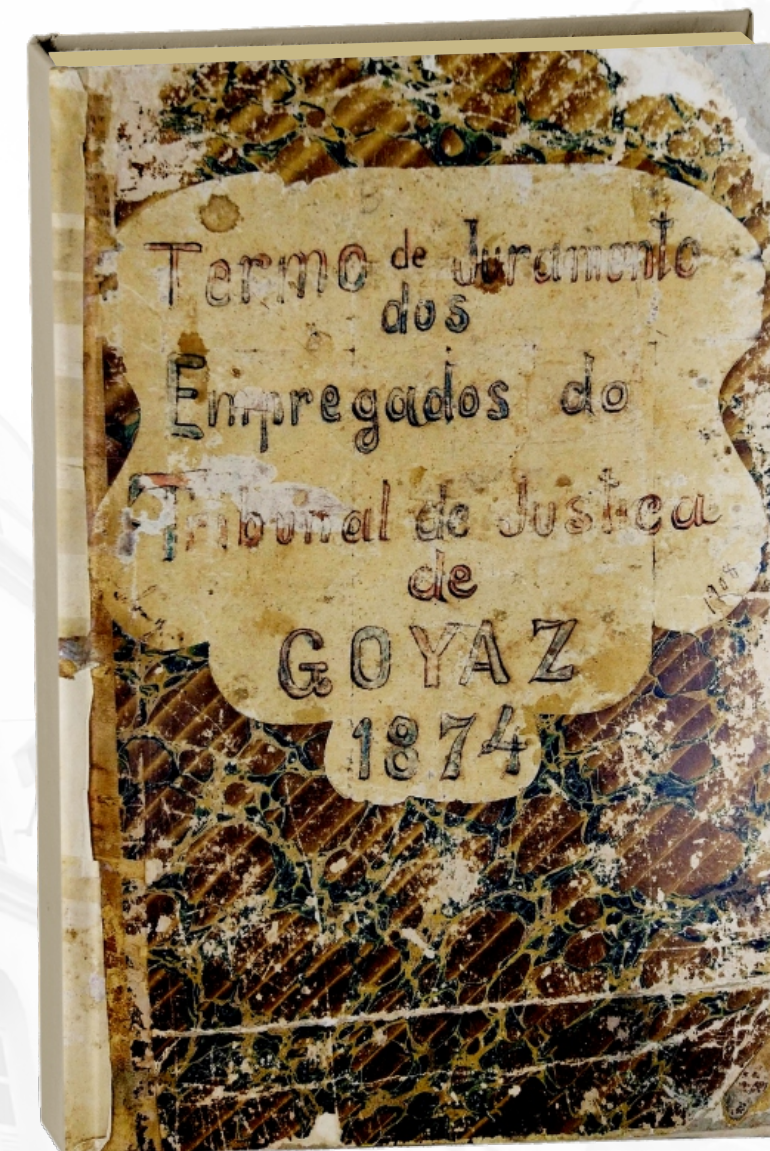 Termo de Juramento
dos
Empregados do
Tribunal de Justiça
de
GOYAZ
1874
1908